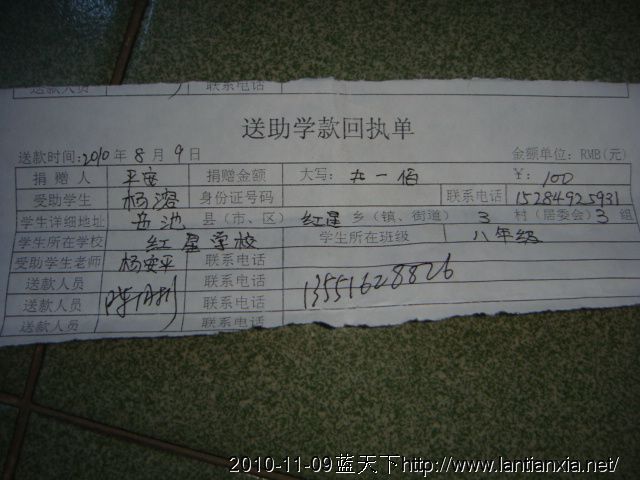 送款人员 联系电话
送助学款回执单
送款时间:2010年8月9日 金额单位:RMB(元)
捐赠人 平安 捐赠金额 大写: 一佰 ¥:100
受助学生 杨溶 身份证号码 联系电话 15284925931
学生详细地址 岳池 县(市、区) 红星 乡(镇、街道) 3 村(居委会) 3 组
学生所在学校 红星学校 学生所在班级 八年级
受助学生老师 杨安平 联系电话
送款人员 联系电话 13551628826
送款人员 联系电话
送款人员 联系电话
2010-11-09蓝天下http://www.lantianxia.net/